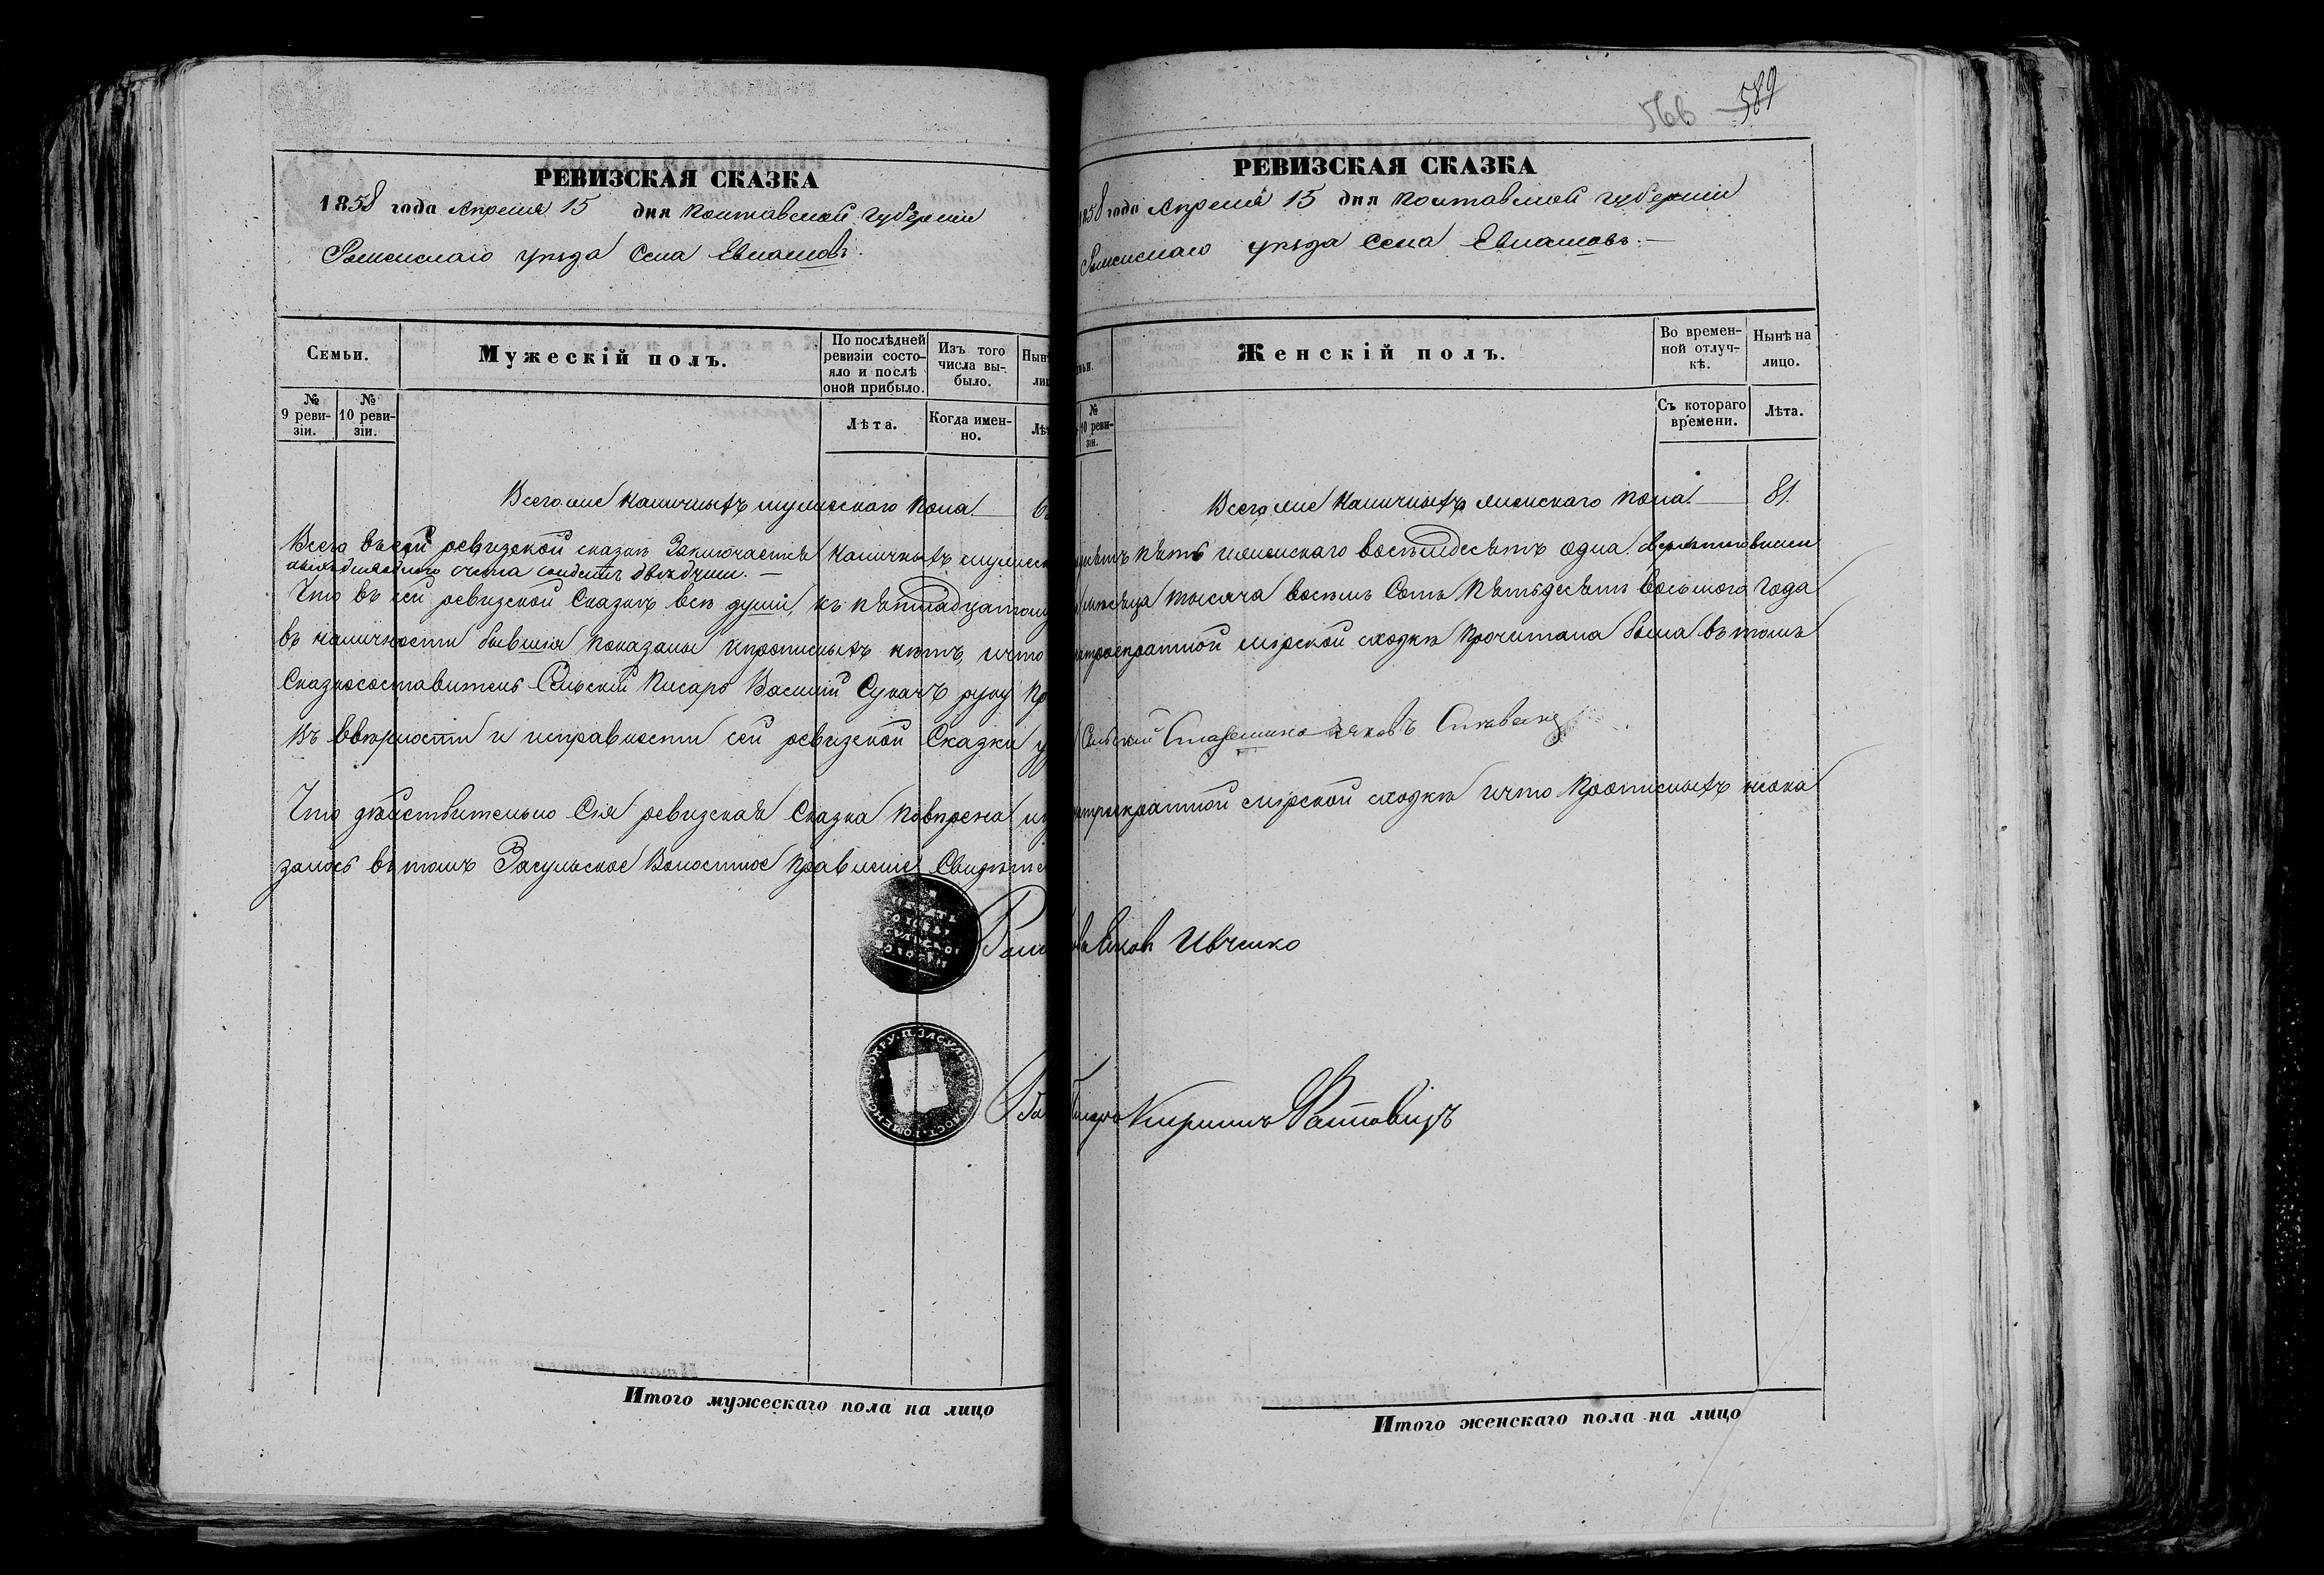 РЕВИЗСКАЯ СКАЗКА
1858 года Апреля 15 дня Полтавской губернии
Роменскаго уезда Села Евлашовъ.
Семьи.
Мужескій полъ.
По послѣдней ревизіи состояло и послѣ оной прибыло.
Изъ того числа выбыло.
№ 9 ревизіи.
№ 10 ревизіи.
Лѣта.
Когда именно.
Всего же наличныхъ мужескаго пола
Всего въ сей ревизской сказкѣ Заключается наличныхъ
Что въ сей ревизской Сказкѣ всѣ души къ пятнадцатому
въ наличности бывшія показаны и прописныхъ нѣтъ, что
Сказкосоставитель Сельскій Писарь Василій Сукачъ руку
Въ вѣрности и исправности сей ревизской Сказки
Что дѣйствительно Сія ревизская Сказка повѣрена
залось въ томъ Засульское Волостное Правленіе
Итого мужескаго пола на лицо
566 589
РЕВИЗСКАЯ СКАЗКА
1858 года Апреля 15 дня Полтавской губерніи
Роменскаго уѣзда Села Евлашовъ.
Женскій полъ.
Во временной отлучкѣ.
Нынѣ на лицо.
№ 10 ревизіи.
Съ котораго времени.
Лѣта.
Всего же Наличныхъ женскаго пола. 81.
пять женскаго восемьдесятъ одна.
мѣсяца тысяча восемь Сотъ Пятьдесятъ восьмого года
мірской сходкѣ прочитана была въ томъ
Сельскій Старшина Яковъ
мірской сходкѣ и что прописныхъ неока
Ивченко
Кириллъ
Итого женскаго пола на лицо